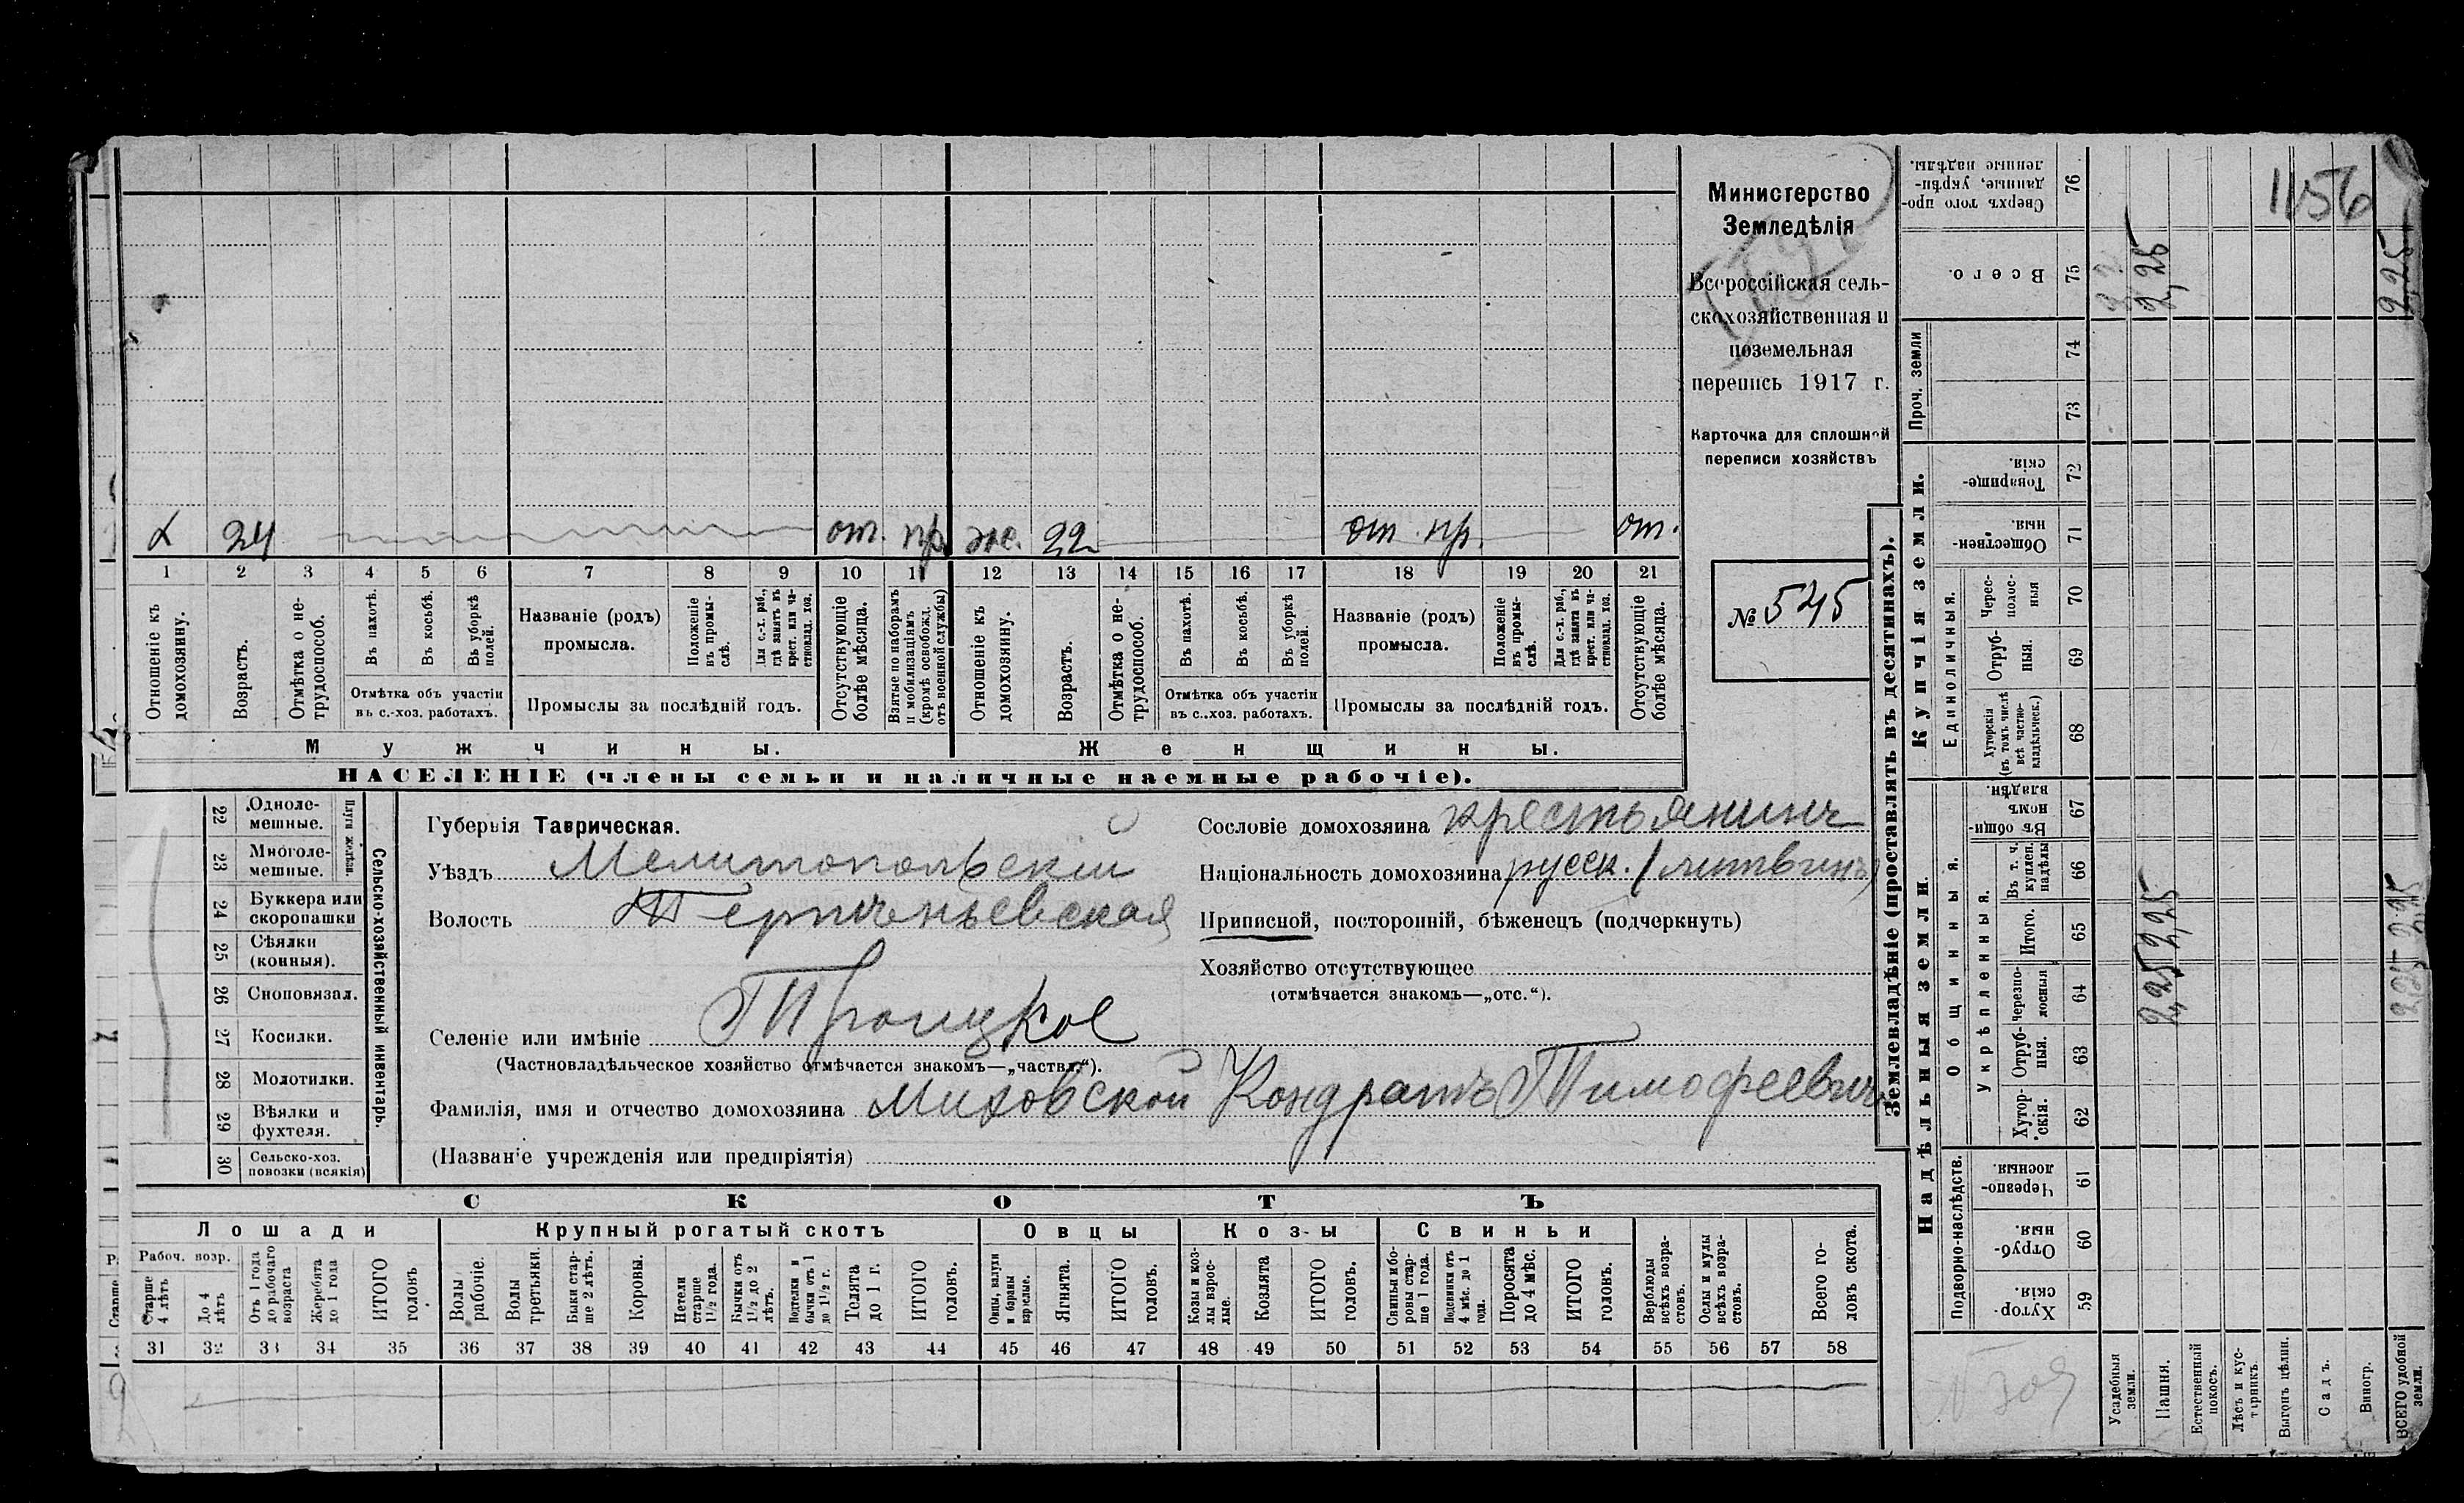 Министерство
Земледѣлія
Всероссійская сель-
скохозяйственная и
поземельная
перепись 1917 г.
Карточка для сплошной
переписи хозяйствъ
№ 545
1156
24 от. пр. же. 22 от пр. от.
1 2 3 4 5 6 7 8 9 10 11 12 13 14 15 16 17 18 19 20 21
Отношеніе къ домохозяину.
Возрастъ.
Отмѣтка о не-трудоспособ.
Въ пахотѣ.
Въ косьбѣ.
Въ уборкѣ полей.
Отмѣтка объ участіи
въ с.-хоз. работахъ.
Названіе (родъ)
промысла.
Положеніе въ промы-слѣ.
Для с.-х. раб., гдѣ занятъ въ крест. или ча-стновлад. хоз.
Промыслы за послѣдній годъ.
Отсутствующіе болѣе мѣсяца.
Взятые по наборамъ и мобилизаціямъ (кромѣ освобожд. отъ военной службы)
Отношеніе къ домохозяину.
Возрастъ.
Отмѣтка о не-трудоспособ.
Въ пахотѣ.
Въ косьбѣ.
Въ уборкѣ полей.
Отмѣтка объ участіи
въ с.-хоз. работахъ.
Названіе (родъ)
промысла.
Положеніе въ промы-слѣ.
Для с.-х. раб., гдѣ занята въ крест. или ча-стновлад. хоз.
Промыслы за послѣдній годъ.
Отсутствующіе болѣе мѣсяца.
Мужчины. Женщины.
НАСЕЛЕНІЕ (члены семьи и наличные наемные рабочіе).
Сельско-хозяйственный инвентарь.
Плуги желѣзн.
22 Одноле-мешные.
23 Многоле-мешные.
24 Буккера или скоропашки
25 Сѣялки (конныя).
26 Сноповязал.
27 Косилки.
28 Молотилки.
29 Вѣялки и фухтеля.
30 Сельско-хоз. повозки (всякія)
Губернія Таврическая.
Уѣздъ Мелитопольскій
Волость Терпеньевская
Селеніе или имѣніе Троицкое
(Частновладѣльческое хозяйство отмѣчается знакомъ—„частвл.“).
Фамилія, имя и отчество домохозяина Миховской Кондратъ Тимофеевичъ
(Названіе учрежденія или предпріятія)
Сословіе домохозяина крестьянинъ
Національность домохозяина русск. (литвинъ)
Приписной, посторонній, бѣженецъ (подчеркнуть)
Хозяйство отсутствующее
(отмѣчается знакомъ—„отс.“).
СКОТЪ
Лошади Крупный рогатый скотъ Овцы Козы Свиньи
Рабоч. возр.
Старше 4 лѣтъ
До 4 лѣтъ
Отъ 1 года до рабочаго возраста
Жеребята до 1 года
ИТОГО головъ
Волы рабочіе.
Волы третьяки.
Быки стар-ше 2 лѣтъ.
Коровы.
Нетели старше 1½ года.
Бычки отъ 1½ до 2 лѣтъ.
Подтелки и бычки отъ 1 до 1½ г.
Телята до 1 г.
ИТОГО головъ.
Овцы, валухи и бараны взрослые.
Ягнята.
ИТОГО головъ.
Козы и коз-лы взрос-лые.
Козлята
ИТОГО головъ.
Свиньи и бо-ровы стар-ше 1 года.
Подсвинки отъ 4 мѣс. до 1 года.
Поросята до 4 мѣс.
ИТОГО головъ.
Верблюды всѣхъ возра-стовъ.
Ослы и мулы всѣхъ возра-стовъ.
Всего го-ловъ скота.
31 32 33 34 35 36 37 38 39 40 41 42 43 44 45 46 47 48 49 50 51 52 53 54 55 56 57 58
Землевладѣніе (проставлять въ десятинахъ).
Надѣльныя земли. Купчія земли. Проч. земли
Подворно-наслѣдств.
Общинныя.
Укрѣпленныя.
Единоличныя.
59 Хутор-скія.
60 Отруб-ныя.
61 Черезпо-лосныя.
62 Хутор-скія.
63 Отруб-ныя.
64 Черезпо-лосныя 2,25 2,25
65 Итого. 2,25 2,25
66 Въ т. ч. куплен. надѣлы
67 Въ общи-номъ владѣн.
68 Хуторскія (въ томъ числѣ всѣ частно-владѣльческ.)
69 Отруб-ныя
70 Черес-полос-ныя
71 Обществен-ныя.
72 Товарище-скія.
73
74
75 Всего. 2,25 2,25
76 Сверхъ того про-данные, укрѣп-ленные надѣлы.
Усадебныя земли.
Пашня.
Естественный покосъ.
Лѣсъ и кус-тарникъ.
Выгонъ цѣлин.
Садъ.
Виногр.
ВСЕГО удобной земли.